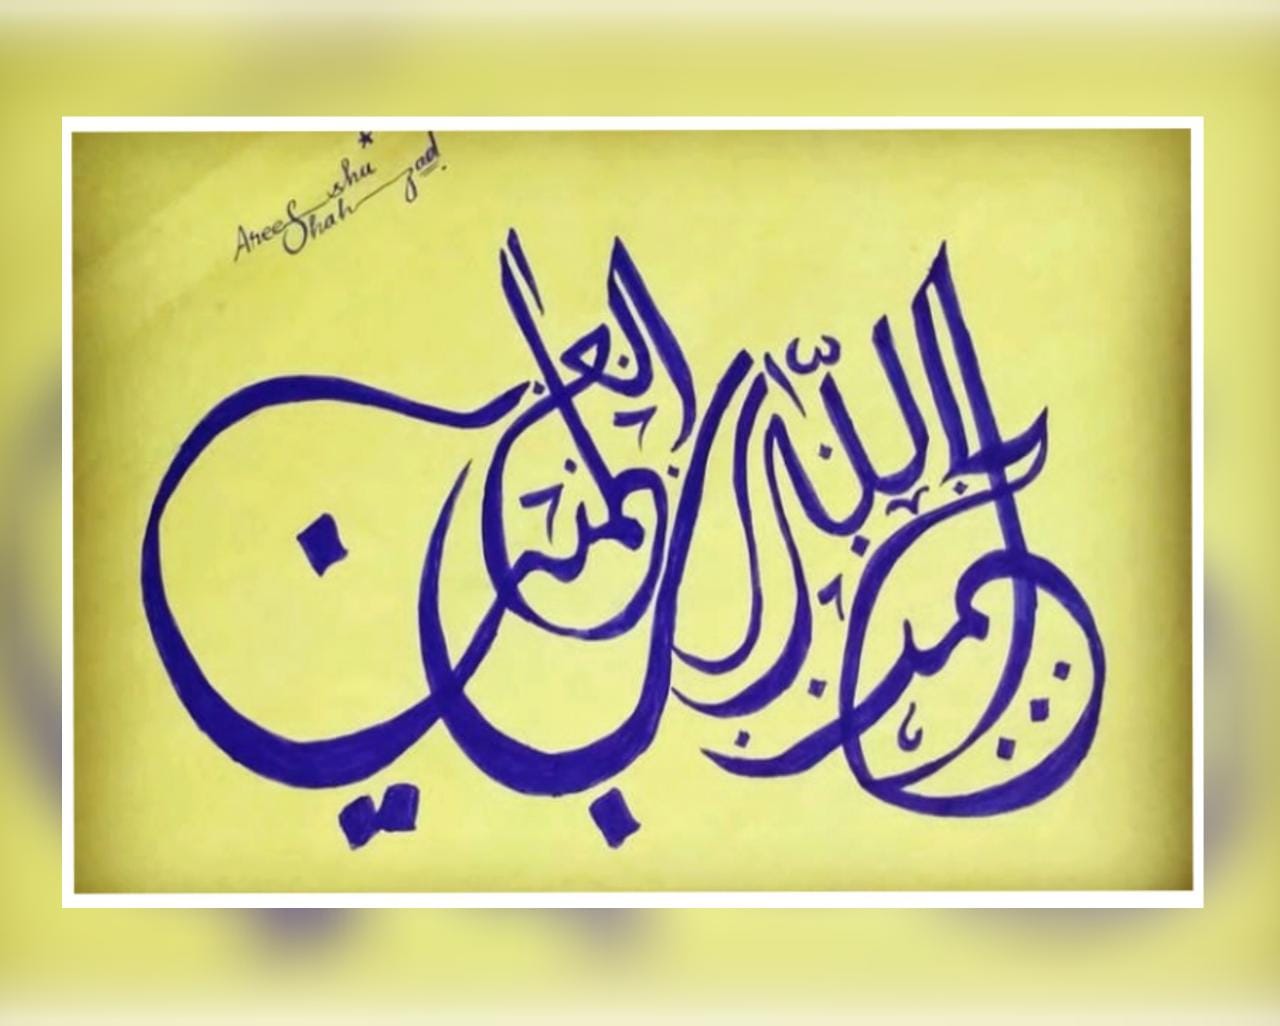 Areeshu
Shahzad
الحمد لله رب العلمين